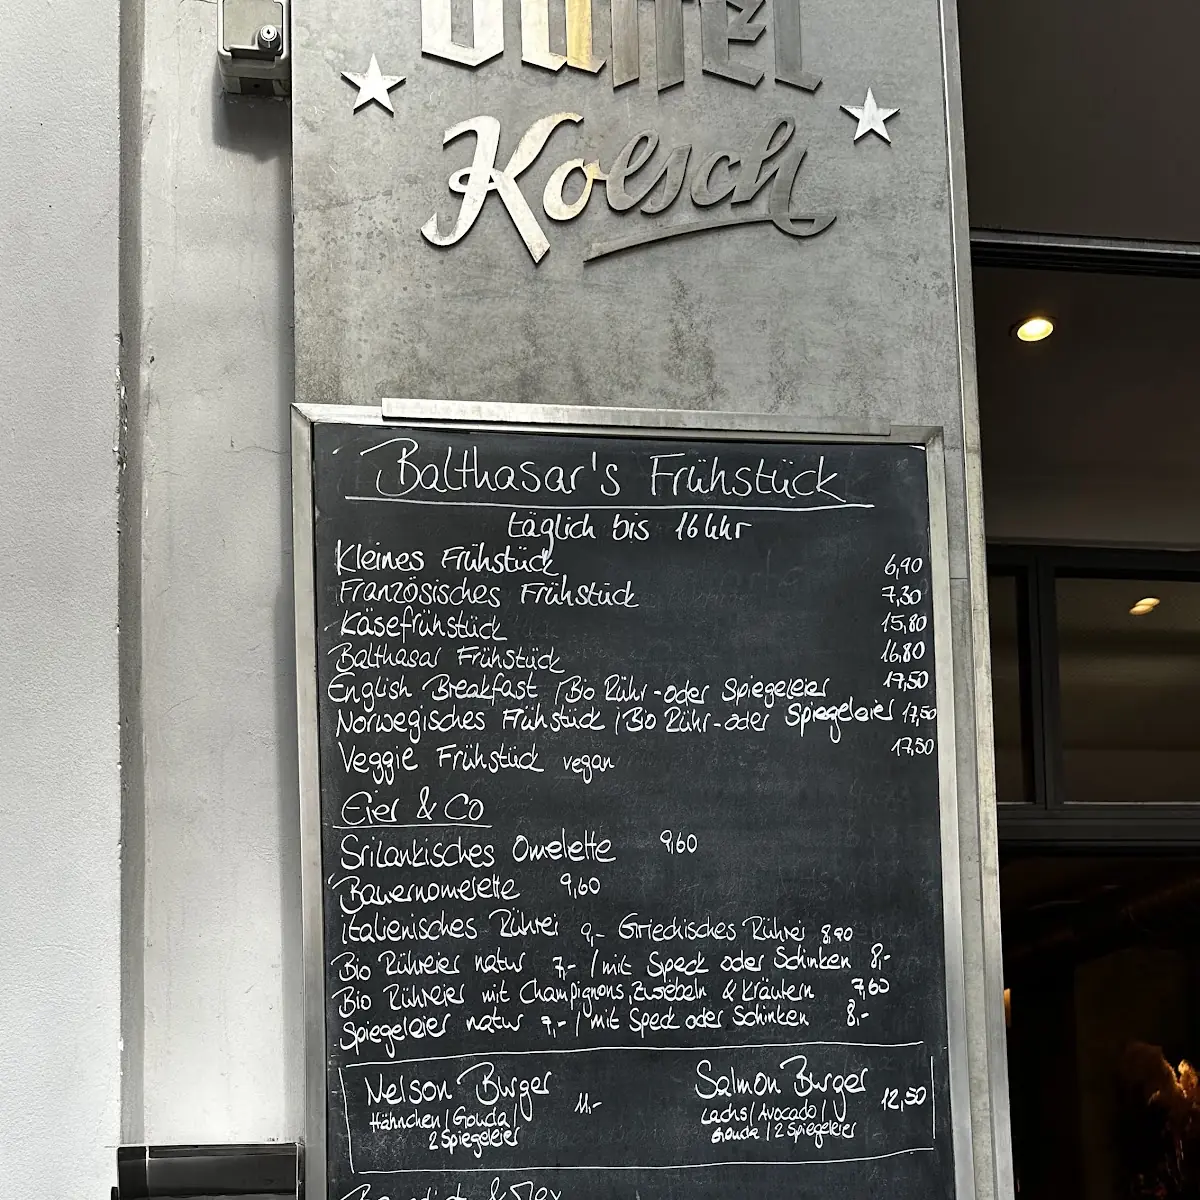 Koelsch
Balthasar's Frühstück
täglich bis 16 Uhr
Kleines Frühstück 6,90
Französisches Frühstück 7,30
Käsefrühstück 15,80
Balthasar Frühstück 16,80
English Breakfast / Bio Rühr- oder Spiegeleier 17,50
Norwegisches Frühstück / Bio Rühr- oder Spiegeleier 17,50
Veggie Frühstück vegan 17,50
Eier & Co
Srilankisches Omelette 9,60
Bauernomelette 9,60
Italienisches Rührei 9,- Griechisches Rührei 8,90
Bio Rühreier natur 7,- / mit Speck oder Schinken 8,-
Bio Rühreier mit Champignons, Zwiebeln & Kräutern 7,60
Spiegeleier natur 7,- / mit Speck oder Schinken 8,-
Nelson Burger 11,-
Hähnchen / Gouda /
2 Spiegeleier
Salmon Burger 12,50
Lachs / Avocado /
Gouda / 2 Spiegeleier